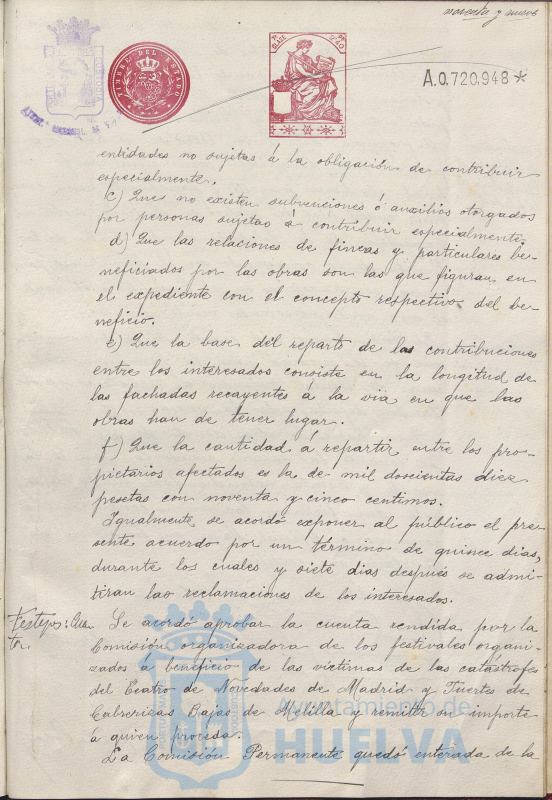 noventa y nueve
TIMBRE DEL ESTADO
A.0.720,948*
entidades no sujetas á la obligación de contribuir
especialmente.
c) Que no existen subvenciones ó auxilios otorgados
por personas sujetas á contribuir especialmente.
d) Que las relaciones de fincas y particulares be-
neficiados por las obras son las que figuran en
el expediente con el concepto respectivo del be-
neficio.
e) Que la base del reparto de las contribuciones
entre los interesados consiste en la longitud de
las fachadas recayentes á la via en que las
obras han de tener lugar.
f) Que la cantidad á repartir entre los pro-
pietarios afectados es la de mil doscientas diez
pesetas con noventa y cinco centimos.
Igualmente se acordó exponer al público el pre-
sente acuerdo por un término de quince dias,
durante los cuales y siete dias después se admi-
tiran las reclamaciones de los interesados.
Festejos: Cuen-
ta.
Se acordó aprobar la cuenta rendida por la
Comisión organizadora de los festivales organi-
zados á beneficio de las victimas de las catástrofes
del Teatro de Novedades de Madrid y Fuertes de
Cabrerizas Bajas de Melilla y remitir su importe
á quien proceda.
La Comisión Permanente quedó enterada de la
Ayuntamiento de
HUELVA